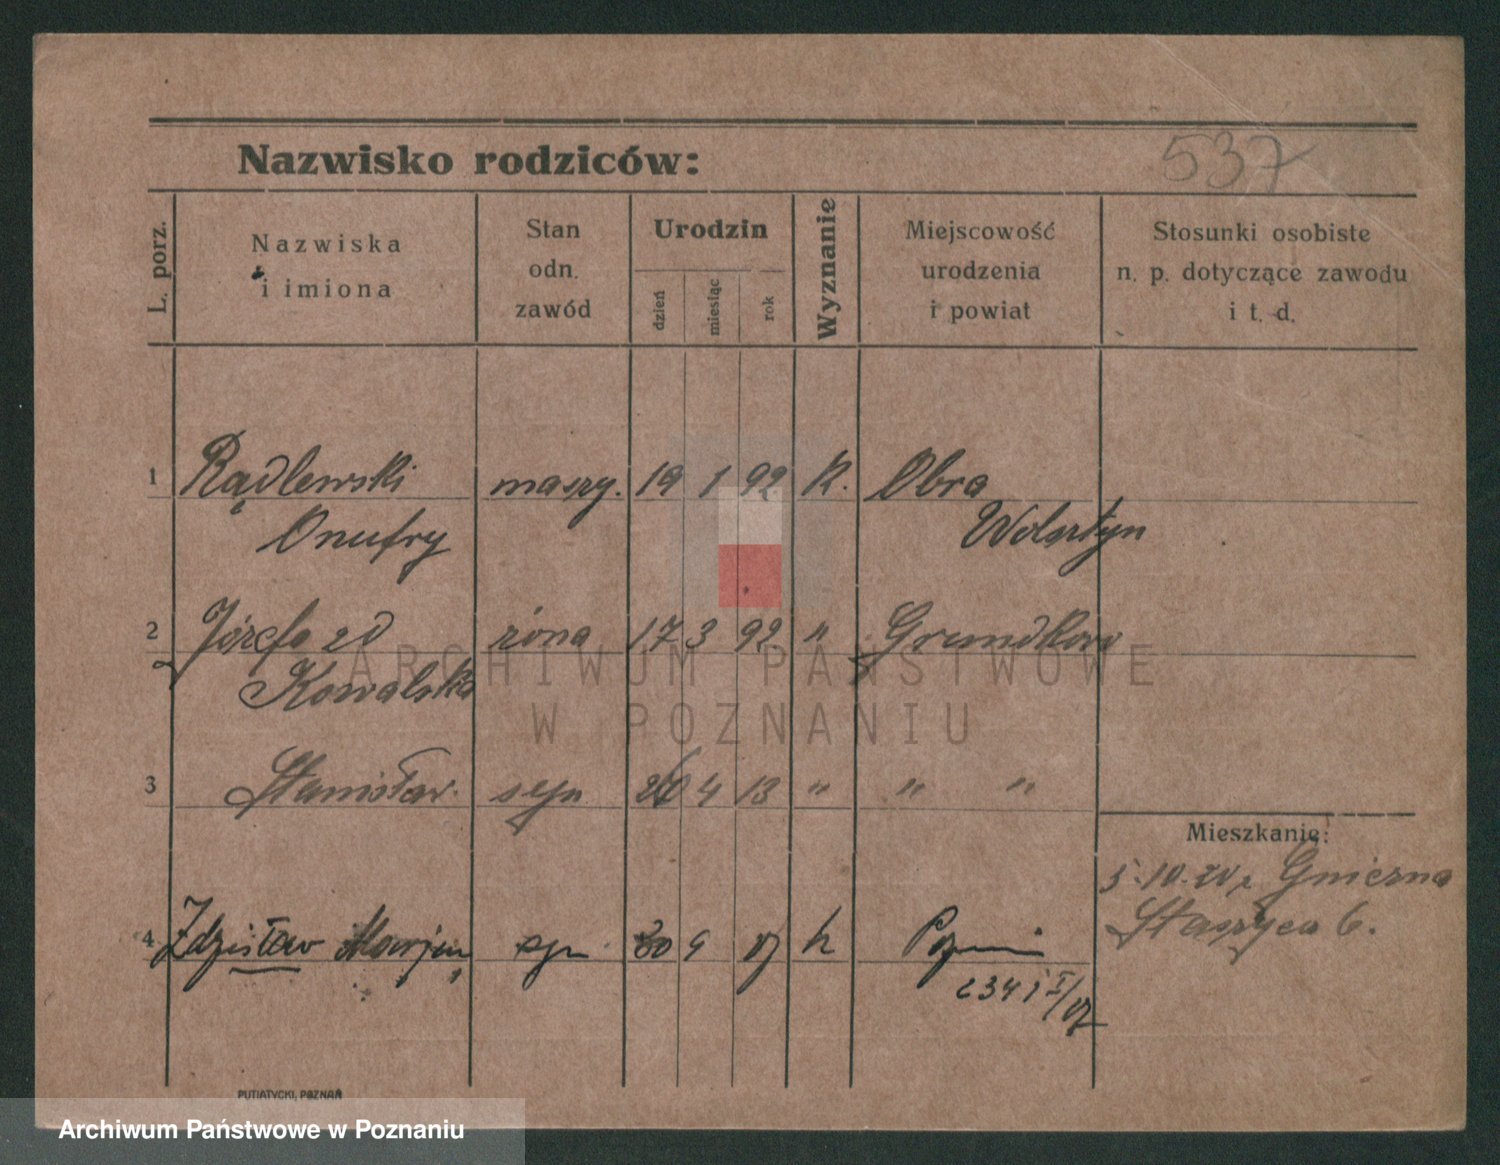 537
Nazwisko rodziców:
L. porz.
Nazwiska
i imiona
Stan
odn.
zawód
Urodzin
dzień
miesiąc
rok
Wyznanie
Miejscowość
urodzenia
i powiat
Stosunki osobiste
n. p. dotyczące zawodu
i t. d.
1 Rądlewski maszy. 19 1 92 K. Obra
Onufry Wolsztyn
2 Józefa zd żona 17 3 92 "
Kowalska
ARCHIWUM PAŃSTWOWE
W POZNANIU
3 Stanisław syn 4 13 " " "
Mieszkanie:
Gniezna
Staszyca 6.
4 Zdzisław Marjan syn
PUTIATYCKI, POZNAŃ
Archiwum Państwowe w Poznaniu